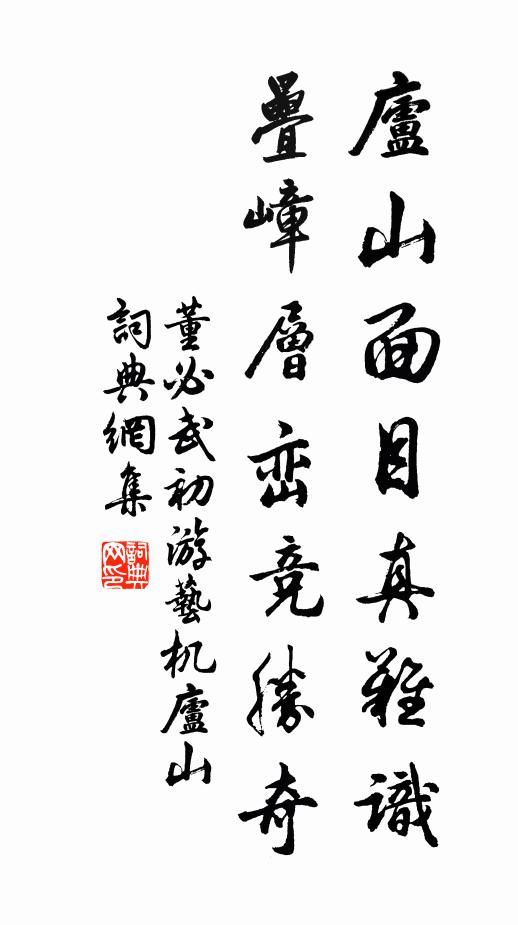 廬山面目真難識
疊嶂層峦竞勝奇
董必武初游藝机廬山
詞典網集
詞典网印